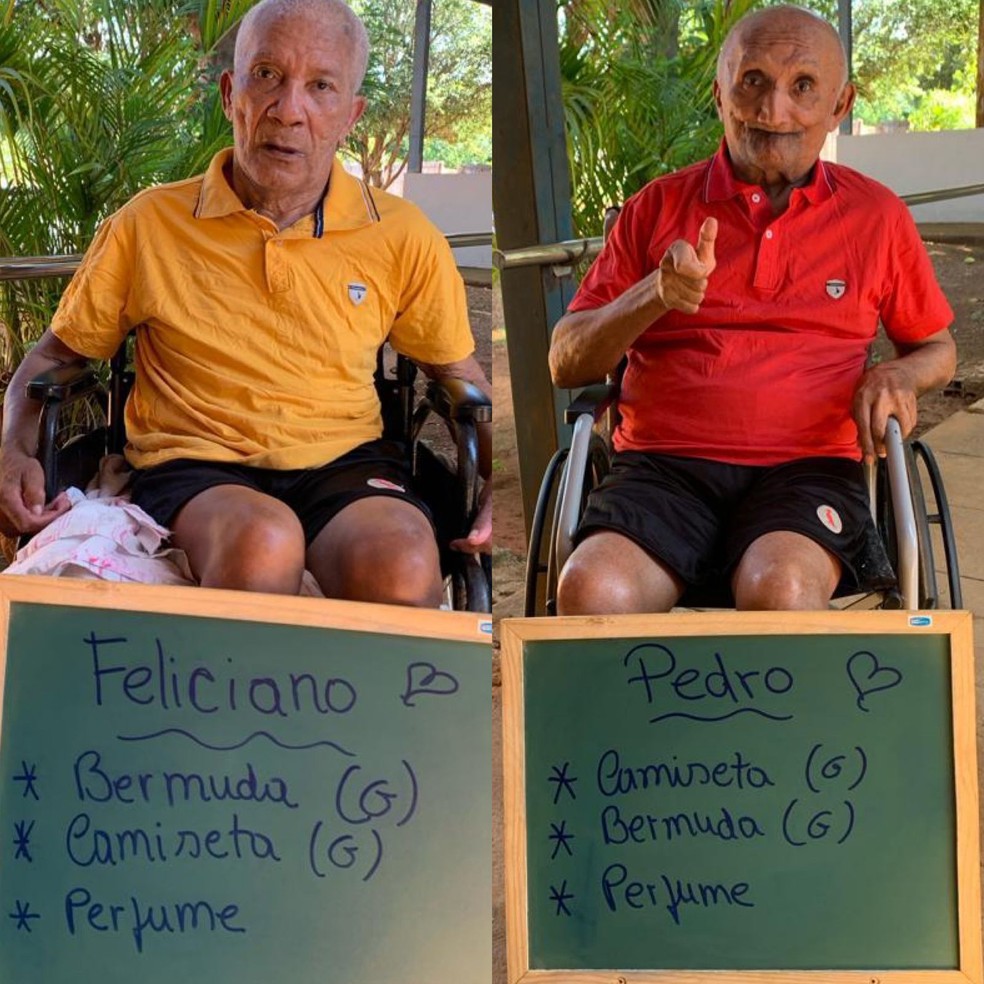 Feliciano
* Bermuda (G)
* Camiseta (G)
* Perfume
Pedro
* Camiseta (G)
* Bermuda (G)
* Perfume